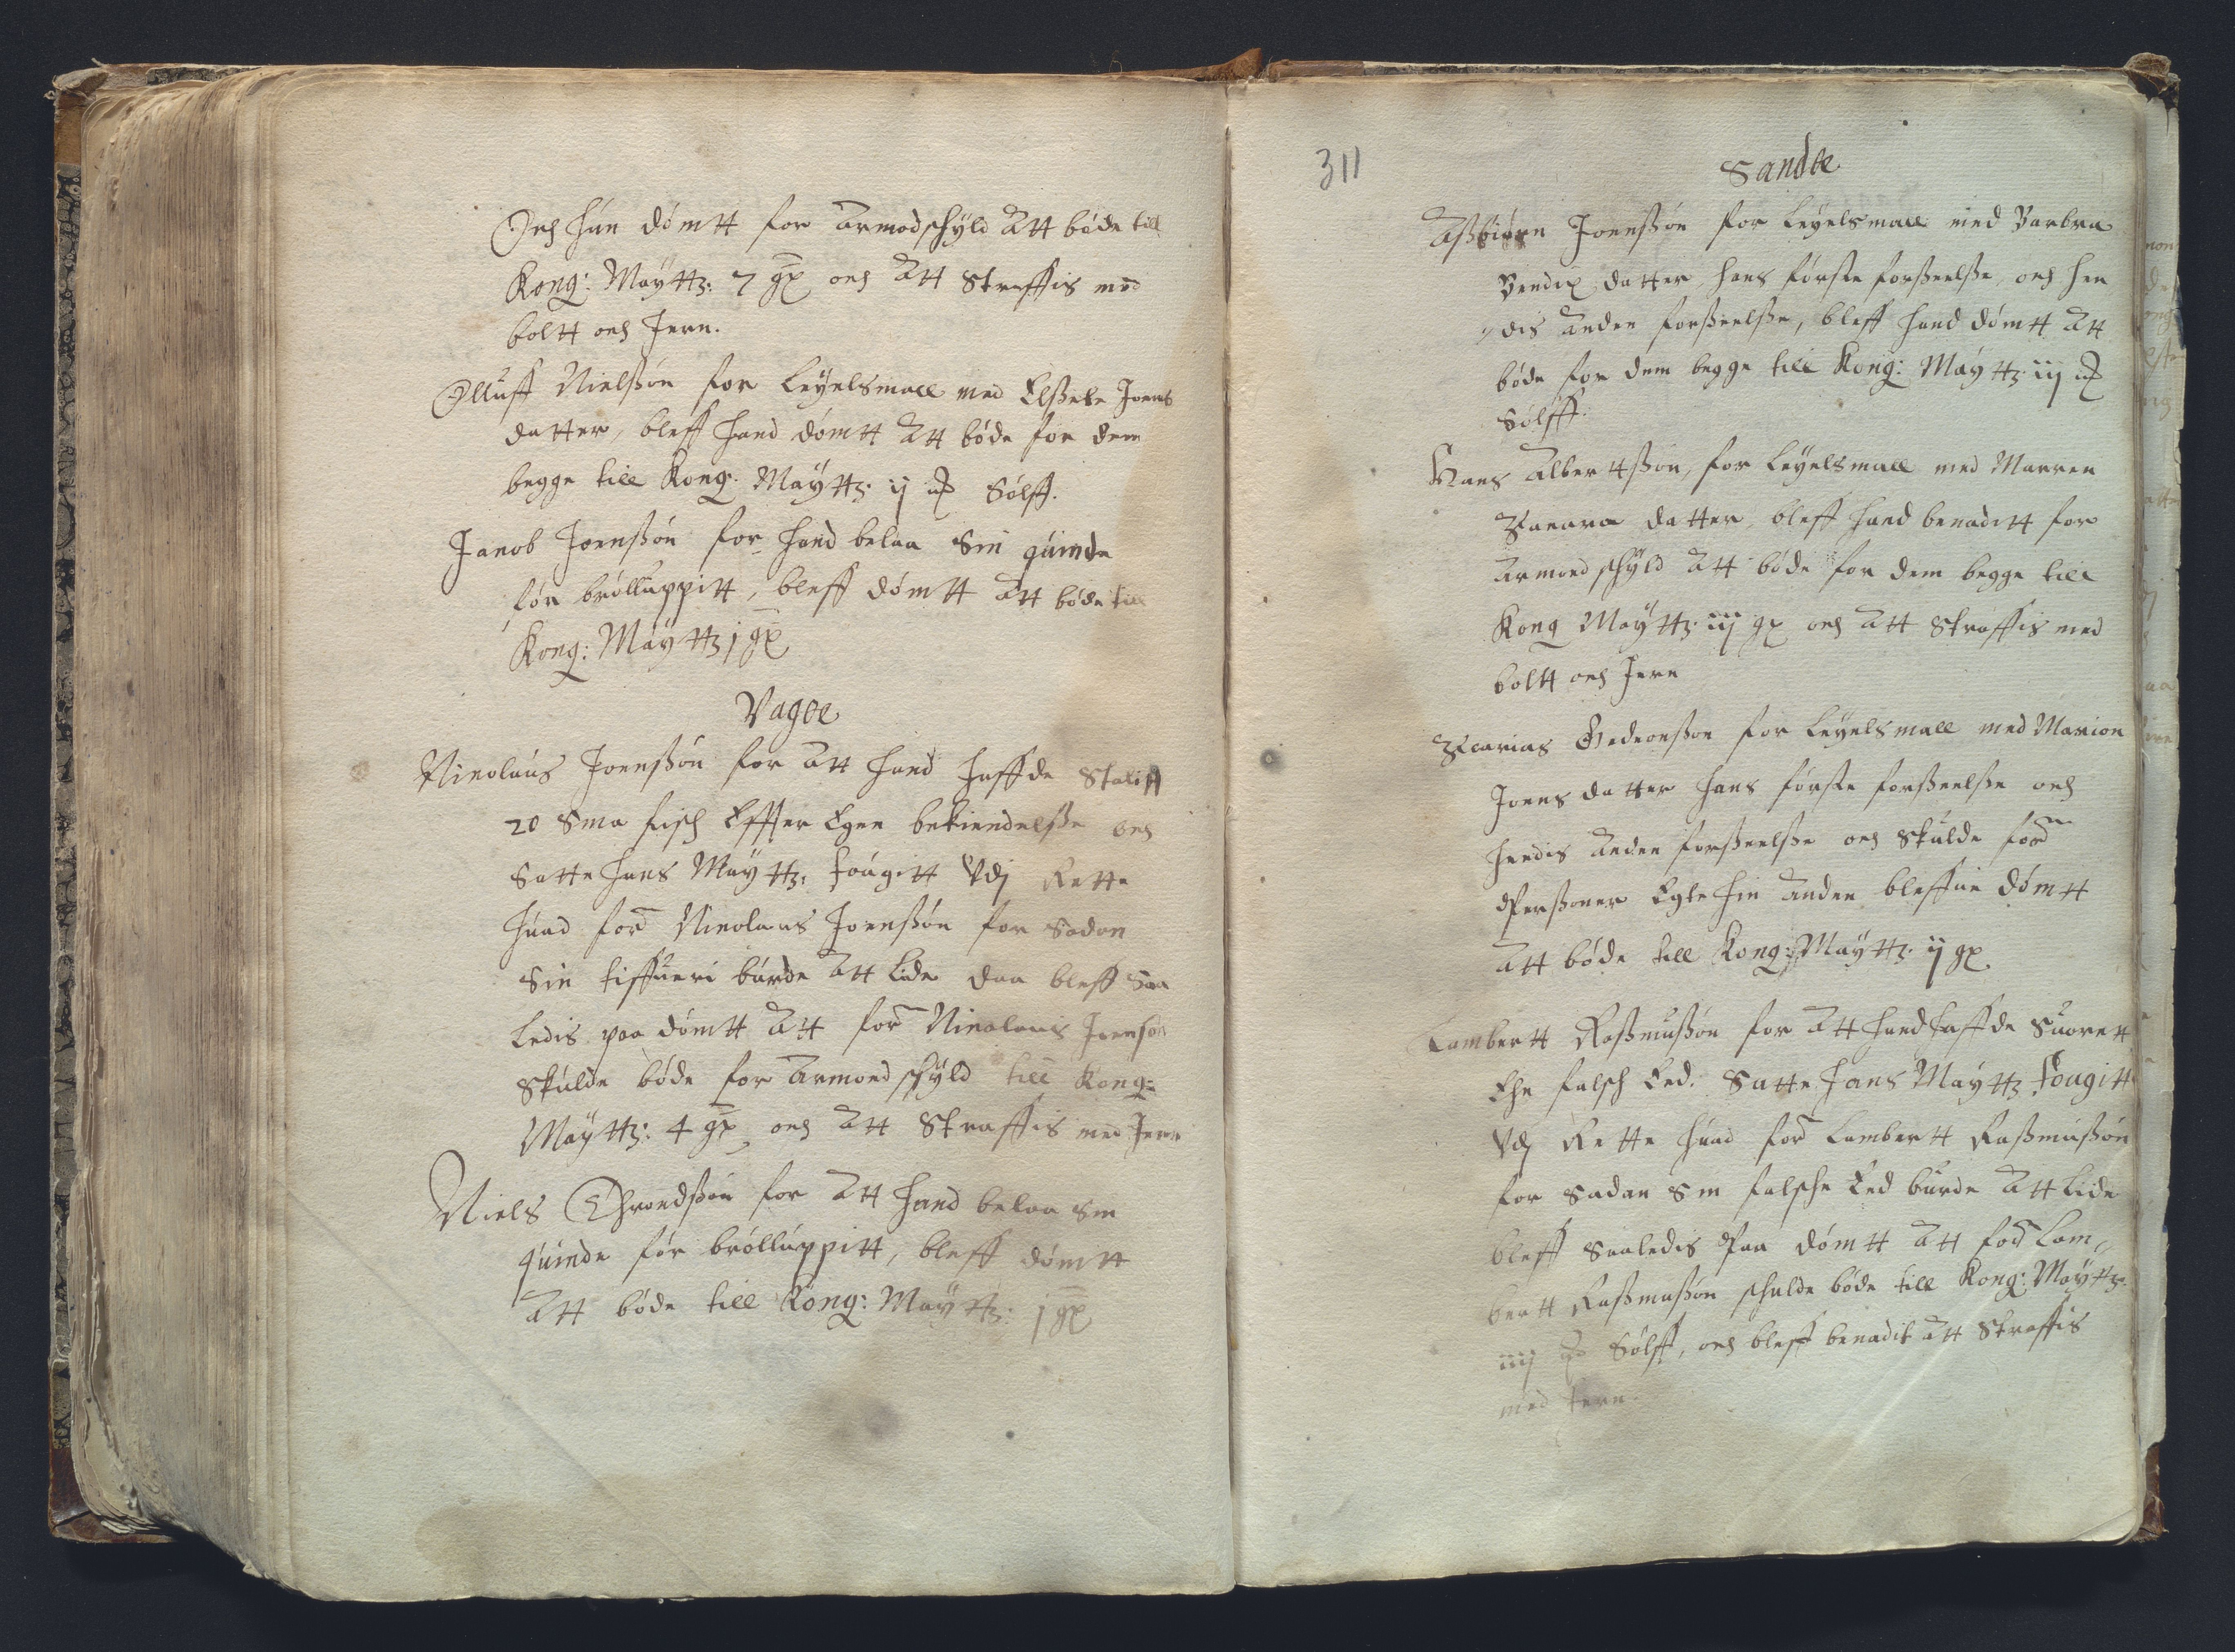 Och hun dømtt for Armodschyld Att bøde till
Kong: Maÿttz: 7 gχ och Att Straffis med
boltt och Jern.
Olluff Nielßøn for Leÿelsmall med Elßebe Joens
datter, bleff hand dømtt Att bøde for dem
begge till Kong: Maÿttz: ij Sølff.
Jacob Joenßøn for hand belaa Sin quinde
før brølluppitt, bleff dømtt Att bøde till
Kong: Maÿttz j gχ
Vagøe
Nicolaus Joenßøn for Att hand haffde Stalitt
20 Sma fisch Effter Egen bekiendelße och
Satte hans Maÿttz: fougitt Vdj Rette
huad for Nicolaus Joenßøn for Sadan
Sin tiffueri burde Att Lide daa bleff Saa
Ledis paa dømtt Att for Nicolaus Joensøn
Skulde bøde for Armoed schyld till Kong:
Maÿttz: 4 gχ och Att Straffis med Jern
Niels Throndßøn for Att hand belaa Sin
quinde før brølluppitt, bleff dømtt
Att bøde till Kong: Maÿttz: j gχ
311
Sandøe
Aßbiørn Joenßøn for Leÿelsmall med Barbra
Bendix datter, hans første forßeelße, och hen
dis Anden forßeelße, bleff hand dømtt Att
bøde for dem begge till Kong: Maÿttz iij
Sølff.
Hans Albertßøn, for Leÿelsmall med Marren
datter, bleff hand benaditt for
Armoed schyld Att bøde for dem begge till
Kong Maÿttz: iij gχ och Att Straffis med
boltt och Jern
Zacarias Gedeonßøn for Leÿelsmall med Marion
Joens datter hans første forßeelße och
hendis Anden forßeelße och Skulde for
Perßoner Egte hin Anden bleffue dømtt
Att bøde till Kong: Maÿttz: ij gχ
Lambertt Raßmußøn for Att hand haffde Suorett
Ehn falsch Eed. Satte Hans Maÿttz fougitt
Vdj Rette huad for Lambertt Raßmußøn
for Sadan Sin falsche Eed burde Att Lide
bleff Saaledis Paa dømtt Att for Lam
bertt Raßmußøn schulde bøde till Kong: Maÿttz.
iiij Sølff, och bleff benadit Att Straffis
med Jern.